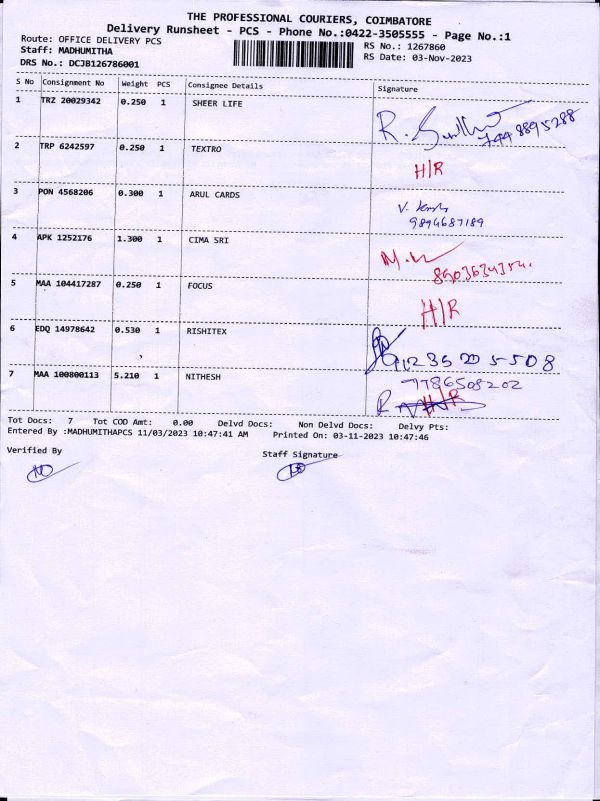 THE PROFESSIONAL COURIERS, COIMBATORE
Delivery Runsheet - PCS - Phone No.:0422-3505555 - Page No.:1
Route: OFFICE DELIVERY PCS
RS No.: 1267860
Staff: MADHUMITHA
RS Date: 03-Nov-2023
DRS No.: DCJB126786001
S No Consignment No Weight PCS Consignee Details Signature
1 TRZ 20029342 0.250 1 SHEER LIFE
R.
8895288
2 TRP 6242597 0.250 1 TEXTRO
H/R
3 PON 4568206 0.300 1 ARUL CARDS
V.
9894687189
4 APK 1252176 1.300 1 CIMA SRI
M.
5 MAA 104417287 0.250 1 FOCUS
H/R
6 EDQ 14978642 0.530 1 RISHITEX
7 MAA 100800113 5.210 1 NITHESH
7786508202
R H/R
Tot Docs: 7 Tot COD Amt: 0.00 Delvd Docs: Non Delvd Docs: Delvy Pts:
Entered By :MADHUMITHAPCS 11/03/2023 10:47:41 AM Printed On: 03-11-2023 10:47:46
Verified By
Staff Signature